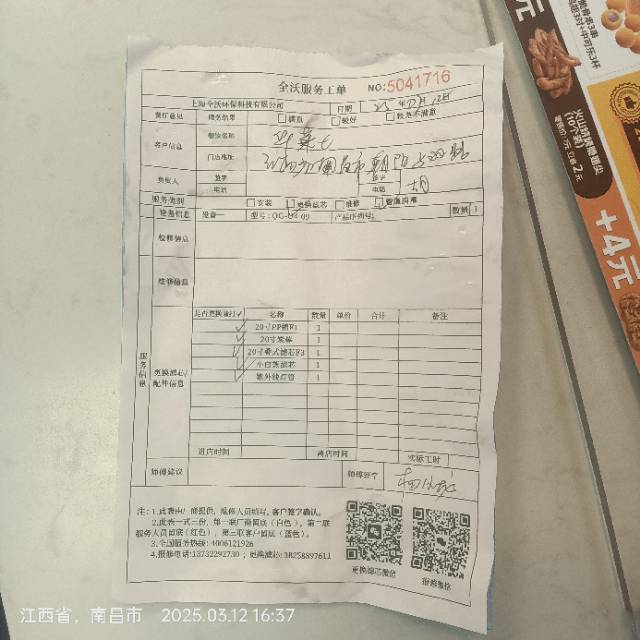 全沃服务工单 NO:5041716
上海全沃环保科技有限公司 日期 25 年 月 12日
服务结果 满意 较好 较差不满意
客户信息 餐饮名称 华莱士
门店地址
电话 电话
服务类别 安装 更换滤芯 维修 管道消毒
设备信息 设备一 型号:QC-U4-09 产品序列号: 数量 1
检修信息
维修信息
服务信息
更换滤芯/配件信息
是否更换请打✓ 名称 数量 单价 合计 备注
✓ 20寸PP棉F1 1
✓ 20寸炭棒 1
✓ 20寸叠式滤芯F3 1
✓ 小白炭滤芯 1
✓ 紫外线灯管 1
进店时间 离店时间 实际工时
师傅建议 师傅签字
注:1.此表由厂商提供,维修人员填写,客户签字确认。
2.此表一式三份,第一联厂商留底(白色),第二联
服务人员留底(红色),第三联客户留底(蓝色)。
3.全国服务热线:4006121926
4.报修电话:13732292730 ;更换滤芯:18258897611
更换滤芯微信 报修微信
+中可乐3杯
元
火山石烤猪蹄
2元
+4元
江西省,南昌市 2025.03.12 16:37